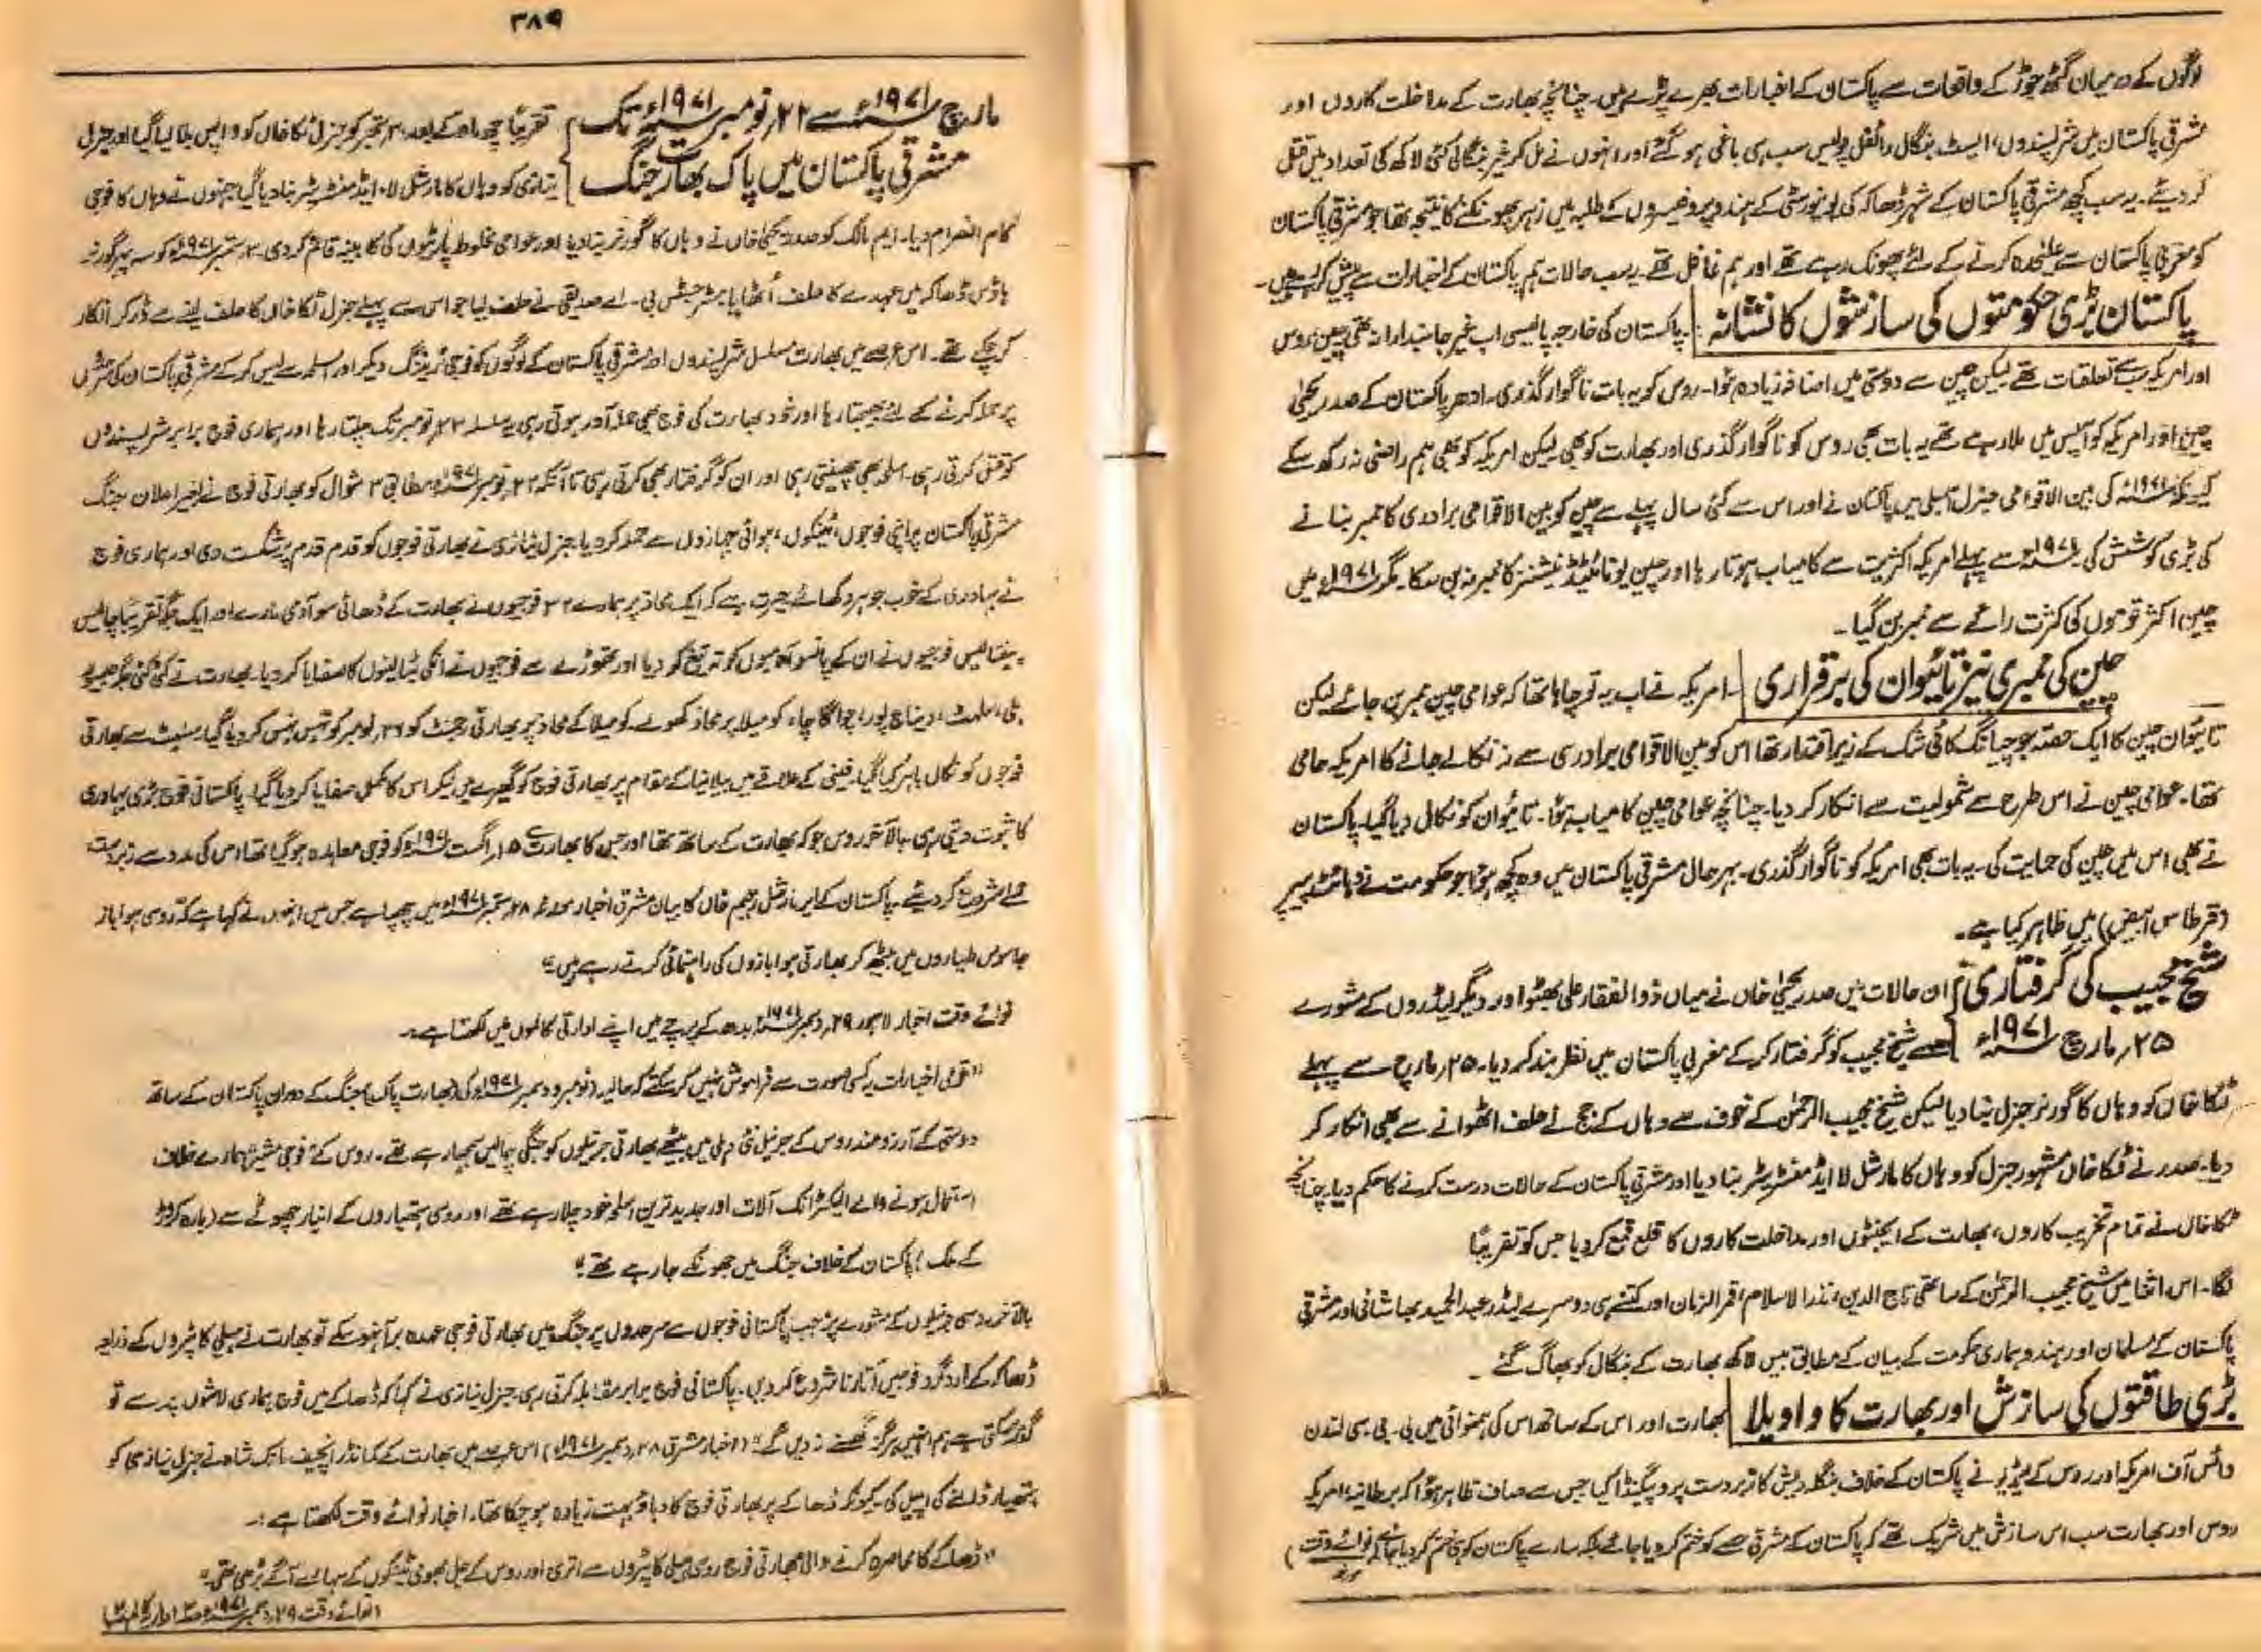 لوگوں کے درمیان گٹھ جوڑ کے واقعات سے پاکستان کے اخبارات بھرے پڑے ہیں۔ چنانچہ بھارت کے مداخلت کاروں اور
مشرقی پاکستان میں شرپسندوں، ایسٹ بنگال رائفل پولیس سب ہی باغی ہو گئے اور انہوں نے مل کر غیر بنگالی کئی لاکھ کی تعداد میں قتل
کر دیئے۔ یہ سب کچھ مشرقی پاکستان کے شہر ڈھاکہ کی یونیورسٹی کے ہندو پروفیسروں کے طلبہ میں زہر پھونکنے کا نتیجہ تھا جو مشرقی پاکستان
کو مغربی پاکستان سے علیٰحدہ کرنے کے لئے پھونک رہے تھے اور ہم غافل تھے۔ یہ سب حالات ہم پاکستان کے اخبارات سے پیش کر رہے ہیں۔
پاکستان بڑی حکومتوں کی سازشوں کا نشانہ پاکستان کی خارجہ پالیسی اب غیر جانبدارانہ تھی چین، روس
اور امریکہ سب سے تعلقات تھے لیکن چین سے دوستی میں اضافہ زیادہ ہوا۔ روس کو یہ بات ناگوار گذری۔ ادھر پاکستان کے صدر یحیٰی
چین اور امریکہ کو آپس میں ملا رہے تھے یہ بات بھی روس کو ناگوار گذری اور بھارت کو بھی لیکن امریکہ کو بھی ہم راضی نہ رکھ سکے
کیونکہ ۱۹۷۱ء کی بین الاقوامی جنرل اسمبلی میں پاکستان نے اور اس سے کئی سال پہلے سے چین کو بین الاقوامی برادری کا ممبر بنانے
کی بڑی کوشش کی ۱۹۷۱ء سے پہلے امریکہ اکثریت سے کامیاب ہوتا رہا اور چین یونائیٹڈ نیشنز کا ممبر نہ بن سکا۔ مگر ۱۹۷۱ء میں
چین اکثر قوموں کی کثرت رائے سے ممبر بن گیا۔
چین کی ممبری نیز تائیوان کی برقراری امریکہ نے اب یہ تو چاہا تھا کہ عوامی چین ممبر بن جائے لیکن
تائیوان چین کا ایک حصہ جو چیانگ کائی شک کے زیر اقتدار تھا اس کو بین الاقوامی برادری سے نہ نکالے جانے کا امریکہ حامی
تھا۔ عوامی چین نے اس طرح سے شمولیت سے انکار کر دیا۔ چنانچہ عوامی چین کامیاب ہوا۔ تائیوان کو نکال دیا گیا۔ پاکستان
نے بھی اس میں چین کی حمایت کی۔ یہ بات بھی امریکہ کو ناگوار گذری۔ بہرحال مشرقی پاکستان میں وہ کچھ ہوا جو حکومت نے وہائٹ پیپر
(قرطاس ابیض) میں ظاہر کیا ہے۔
شیخ مجیب کی گرفتاری ان حالات میں صدر یحیٰی خاں نے میاں ذوالفقار علی بھٹو اور دیگر لیڈروں کے مشورے
۲۵؍ مارچ ۱۹۷۱ء سے شیخ مجیب کو گرفتار کر کے مغربی پاکستان میں نظر بند کر دیا۔ ۲۵؍ مارچ سے پہلے
ٹکا خاں کو وہاں کا گورنر جنرل بنا دیا لیکن شیخ مجیب الرحمٰن کے خوف سے وہاں کے جج نے حلف اٹھوانے سے بھی انکار کر
دیا۔ صدر نے ٹکا خاں مشہور جنرل کو وہاں کا مارشل لا ایڈمنسٹریٹر بنا دیا اور مشرقی پاکستان کے حالات درست کرنے کا حکم دیا۔ چنانچہ
ٹکا خاں نے تمام تخریب کاروں، بھارت کے ایجنٹوں اور مداخلت کاروں کا قلع قمع کر دیا جس کو تقریباً
لگا۔ اس اثنا میں شیخ مجیب الرحمٰن کے ساتھی تاج الدین، نذرالاسلام، قمر الزمان اور کتنے ہی دوسرے لیڈر عبدالحمید بھاشانی اور مشرقی
پاکستان کے مسلمان اور ہندو ہماری حکومت کے بیان کے مطابق بیس لاکھ بھارت کے بنگال کو بھاگ گئے۔
بڑی طاقتوں کی سازش اور بھارت کا واویلا بھارت اور اس کے ساتھ اس کی ہمنوائی میں بی۔ بی۔ سی لندن
وائس آف امریکہ اور روس کے ریڈیو نے پاکستان کے خلاف بنگلہ دیش کا زبردست پروپیگنڈا کیا جس سے صاف ظاہر ہوا کہ برطانیہ، امریکہ
روس اور بھارت سب اس سازش میں شریک تھے کہ پاکستان کے مشرقی حصے کو ختم کر دیا جائے بلکہ سارے پاکستان کو ہی ختم کر دیا جائے نوائے وقت
۳۸۹
مارچ ۱۹۷۱ء سے ۲۲؍ نومبر ۱۹۷۱ء تک تقریباً چھ ماہ کے بعد ۳؍ ستمبر کو جنرل ٹکا خاں کو واپس بلا لیا گیا اور جنرل
مشرقی پاکستان میں پاک بھارت جنگ نیازی کو وہاں کا مارشل لاء ایڈمنسٹریٹر بنا دیا گیا جنہوں نے وہاں کا فوجی
کام انصرام دیا۔ ایم مالک کو صدر یحیٰی خاں نے وہاں کا گورنر بنا دیا اور عوامی مخلوط پارٹیوں کی کابینہ قائم کر دی۔ ۳؍ ستمبر ۱۹۷۱ء کو سہ پہر گورنر
ہاؤس ڈھاکہ میں عہدے کا حلف اُٹھایا۔ مسٹر جسٹس بی۔ اے صدیقی نے حلف لیا جو اس سے پہلے جنرل ٹکا خاں کا حلف لینے سے ڈر کر انکار
کر چکے تھے۔ اس عرصے میں بھارت مسلسل شرپسندوں اور مشرقی پاکستان کے لوگوں کو فوجی ٹریننگ دیکر اور اسلحہ سے لیس کر کے مشرقی پاکستان کی سرحدوں
پر حملہ کرنے کے لئے بھیجتا رہا اور خود بھارت کی فوج بھی حملہ آور ہوتی رہی یہ سلسلہ ۲۲؍ نومبر تک چلتا رہا اور ہماری فوج برابر شرپسندوں
کو قتل کرتی رہی۔ اسلحہ بھی چھینتی رہی اور ان کو گرفتار بھی کرتی رہی تاآنکہ ۲۲؍ نومبر ۱۹۷۱ء مطابق ۳ شوال کو بھارتی فوج نے بغیر اعلان جنگ
مشرقی پاکستان پر اپنی فوجوں، ٹینکوں، ہوائی جہازوں سے حملہ کر دیا۔ جنرل نیازی نے بھارتی فوجوں کو قدم قدم پر شکست دی اور ہماری فوج
نے بہادری کے خوب جوہر دکھائے حیرت ہے کہ ایک محاذ پر ہمارے ۲۲ فوجیوں نے بھارت کے ڈھائی سو آدمی مارے اور ایک جگہ تقریباً چالیس
پینتالیس فوجیوں نے ان کے پانسو آدمیوں کو تہ تیغ کر دیا اور تھوڑے سے فوجیوں نے انکی بٹالینوں کا صفایا کر دیا۔ بھارت نے کئی کئی جگہ جیسے
ہلی، سلہٹ، دیناج پور، چواگاچہ، کومیلا پر محاذ کھولے۔ کومیلا کے محاذ پر بھارتی رجمنٹ کو ۲۶؍ نومبر کو تہس نہس کر دیا گیا۔ سلہٹ سے بھارتی
فوجوں کو نکال باہر کیا گیا۔ فینی کے علاقے میں بیلانیا کے مقام پر بھارتی فوج کو گھیرے میں لیکر اس کا مکمل صفایا کر دیا گیا۔ پاکستانی فوج بڑی بہادری
کا ثبوت دیتی رہی۔ بالآخر روس جو کہ بھارت کے ساتھ تھا اور جس کا بھارت سے ۱۵؍ اگست ۱۹۷۱ء کو فوجی معاہدہ ہو گیا تھا اس کی مدد سے زبردست
حملے شروع کر دیئے۔ پاکستان کے ایر مارشل رحیم خاں کا بیان مشرق اخبار مورخہ ۲۸؍ ستمبر ۱۹۷۱ء میں چھپا ہے جس میں انہوں نے کہا ہے کہ "روسی ہوا باز
جاسوس طیاروں میں بیٹھ کر بھارتی ہوا بازوں کی راہنمائی کرتے رہے ہیں"
نوائے وقت اخبار لاہور ۲۹؍ دسمبر ۱۹۷۱ء بدھ کے پرچے میں اپنے ادارتی کالموں میں لکھتا ہے:۔
"قومی اخبارات یہ کسی صورت سے فراموش نہیں کر سکتے کہ حالیہ (نومبر و دسمبر ۱۹۷۱ء کی) بھارت پاک جنگ کے دوران پاکستان کے ساتھ
دوستی کے آرزو مند روس کے جرنیل نئی دہلی میں بیٹھے بھارتی جرنیلوں کو جنگی چالیں سمجھا رہے تھے۔ روس کے فوجی مشیر ہمارے خلاف
استعمال ہونے والے الیکٹرانک آلات اور جدید ترین اسلحہ خود چلا رہے تھے اور روسی ہتھیاروں کے انبار چھوٹے سے (بارہ کروڑ
کے ملک) پاکستان کے خلاف جنگ میں جھونکے جا رہے تھے"
بالآخر روسی جرنیلوں کے مشورے پر جب پاکستانی فوجوں سے سرحدوں پر جنگ میں بھارتی فوجی عہدہ برآ نہ ہو سکے تو بھارت نے ہیلی کاپٹروں کے ذریعہ
ڈھاکہ کے اردگرد فوجیں اتارنا شروع کر دیں۔ پاکستانی فوج برابر مقابلہ کرتی رہی۔ جنرل نیازی نے کہا کہ ڈھاکے میں فوج ہماری لاشوں پر سے تو
گزر سکتی ہے ہم انہیں ہرگز گھسنے نہ دیں گے" (اخبار مشرق ۲۸؍ دسمبر ۱۹۷۱ء) اس عرصے میں بھارت کے کمانڈر انچیف مانک شاہ نے جنرل نیازی کو
ہتھیار ڈالنے کی اپیل کی۔ کیونکہ ڈھاکے پر بھارتی فوج کا دباؤ بہت زیادہ ہو چکا تھا۔ اخبار نوائے وقت لکھتا ہے:۔
"ڈھاکے کا محاصرہ کرنے والی بھارتی فوج روسی ہیلی کاپٹروں سے اتری اور روس کے جل بھومی ٹینکوں کے سہارے آگے بڑھی تھی۔"
(نوائے وقت ۲۹؍ دسمبر ۱۹۷۱ء